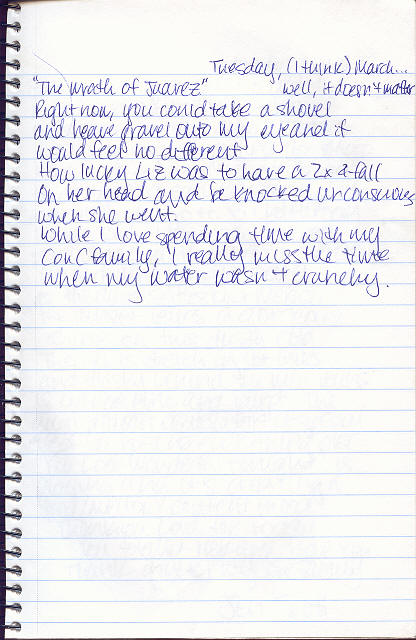 Tuesday, (I think) March...
"The wrath of Juarez" well, it doesn't matter
Right now, you could take a shovel
and heave gravel onto my eye and it
would feel no different
How lucky Liz was to have a 2x4 fall
On her head and be knocked unconscious
when she went.
While I love spending time with my
ConC family, I really miss the time
when my water wasn't crunchy.